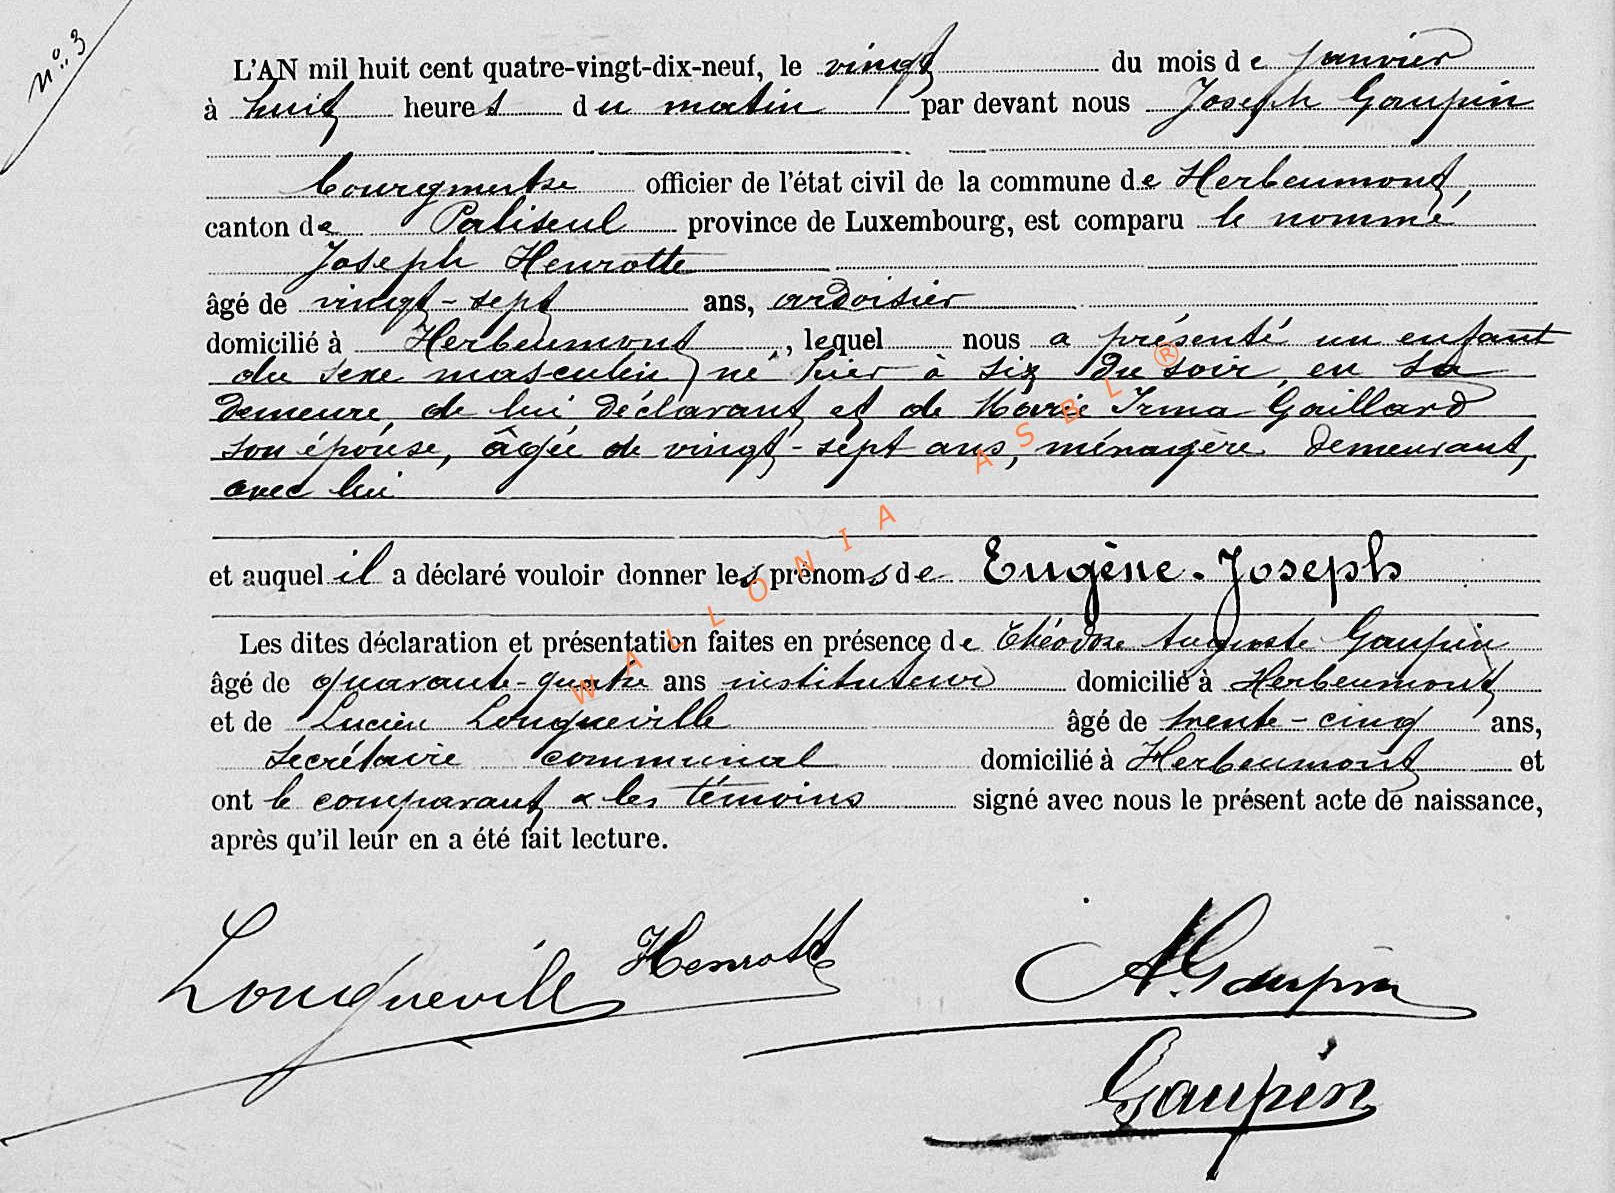 N°. 3
L'AN mil huit cent quatre-vingt-dix-neuf, le vingt du mois de janvier
à huit heures du matin par devant nous Joseph Gaupin
bourgmestre officier de l'état civil de la commune de Herbeumont,
canton de Paliseul province de Luxembourg, est comparu le nommé
Joseph Henrotte
âgé de vingt-sept ans, ardoisier
domicilié à Herbeumont, lequel nous a présenté un enfant
du sexe masculin, né hier à six du soir, en sa
demeure, de lui déclarant, et de Marie Irma Gaillard
son épouse, âgée de vingt-sept ans, ménagère demeurant,
avec lui
et auquel il a déclaré vouloir donner les prénoms de Eugène-Joseph
Les dites déclaration et présentation faites en présence de Théodore Auguste Gaupin
âgé de quarante-quatre ans instituteur domicilié à Herbeumont
et de Lucien Longueville âgé de trente-cinq ans,
secrétaire communal domicilié à Herbeumont et
ont le comparant & les témoins signé avec nous le présent acte de naissance,
après qu'il leur en a été fait lecture.
Longueville Henrotte A. Gaupin
Gaupin
WALLONIA ASBL ®